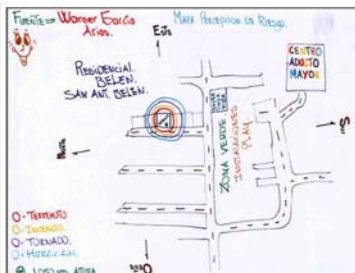 FUENTE => Warner García
Arias.
MAPA PERCEPCION DE RIESGO.
Este
RESIDENCIAL.
BELEN.
SAN ANT. BELEN.
CENTRO
ADULTO
MAYOR
SUR
NORTE
ZONA VERDE
INSTALACIONES
PLAY.
O- TERREMOTO
O- INCENDIO
O- TORNADO.
O- HURACAN.